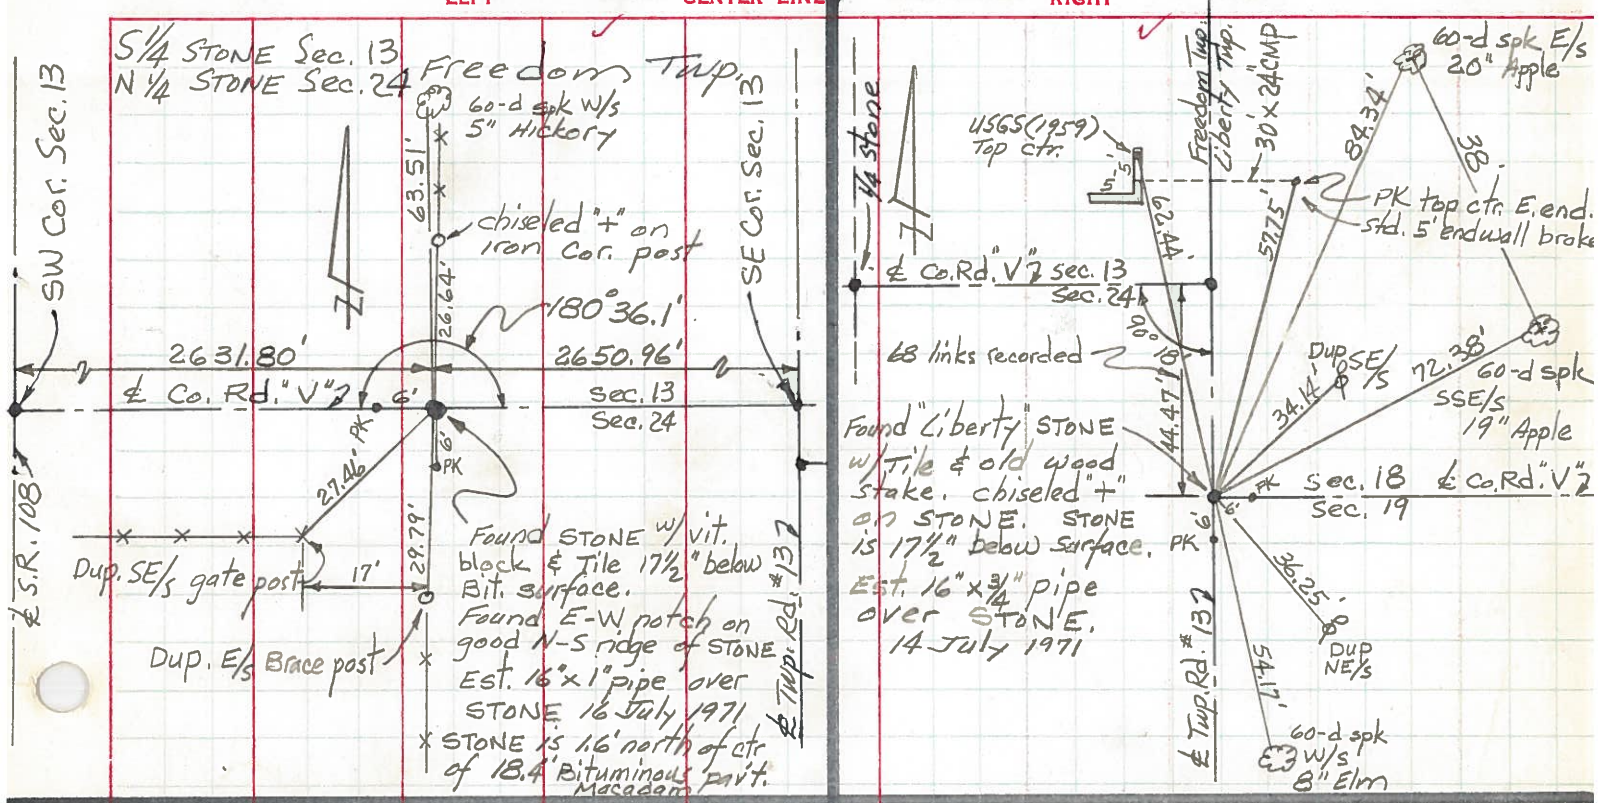 S 1/4 STONE Sec. 13
N 1/4 STONE Sec. 24
Freedom Twp.
60-d spk W/s
5" Hickory
63.51'
chiseled "+" on
iron Cor. post
26.64'
180° 36.1'
SW Cor. Sec. 13
SE Cor. Sec. 13
2631.80'
2650.96'
℄ Co. Rd. "V"
6'
Sec. 13
Sec. 24
PK
6'
PK
27.46'
29.79'
℄ S.R. 108
Dup. SE/s gate post
17'
Dup. E/s Brace post
Found STONE w/ vit.
block & Tile 17½" below
Bit. surface.
Found E-W notch on
good N-S ridge of STONE
Est. 16" x 1" pipe over
STONE 16 July 1971
STONE is 1.6' north of ctr
of 18.4' Bituminous pav't.
Macadam
℄ Twp. Rd. #137
CENTER LINE
RIGHT
1/4 stone
USGS (1959)
Top ctr.
5'
5'
Freedom Twp.
Liberty Twp.
30' x 24" CMP
60-d spk E/s
20" Apple
84.34'
38'
PK top ctr. E. end.
std. 5' endwall broke
62.44'
57.75'
℄ Co. Rd. "V" Sec. 13
Sec. 24
90°
68 links recorded
44.47'
Dup SE/s
34.14'
72.38'
60-d spk
SSE/s
19" Apple
Found "Liberty" STONE
w/ Tile & old wood
stake. chiseled "+"
on STONE. STONE
is 17½" below surface.
Est. 16" x 3/4" pipe
over STONE.
14 July 1971
PK
6'
Sec. 18 ℄ Co. Rd. "V"
Sec. 19
PK 6'
36.25'
Dup
NE/s
54.17'
60-d spk
W/s
8" Elm
℄ Twp. Rd. #137